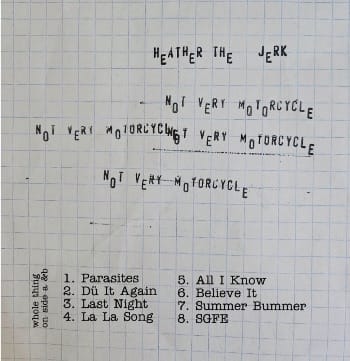 HEATHER THE JERK
NOT VERY MOTORCYCLE
NOT VERY MOTORCYCLE
NOT VERY MOTORCYCLE
NOT VERY MOTORCYCLE
whole thing
on side a &b
1. Parasites
2. Dü It Again
3. Last Night
4. La La Song
5. All I Know
6. Believe It
7. Summer Bummer
8. SGFE